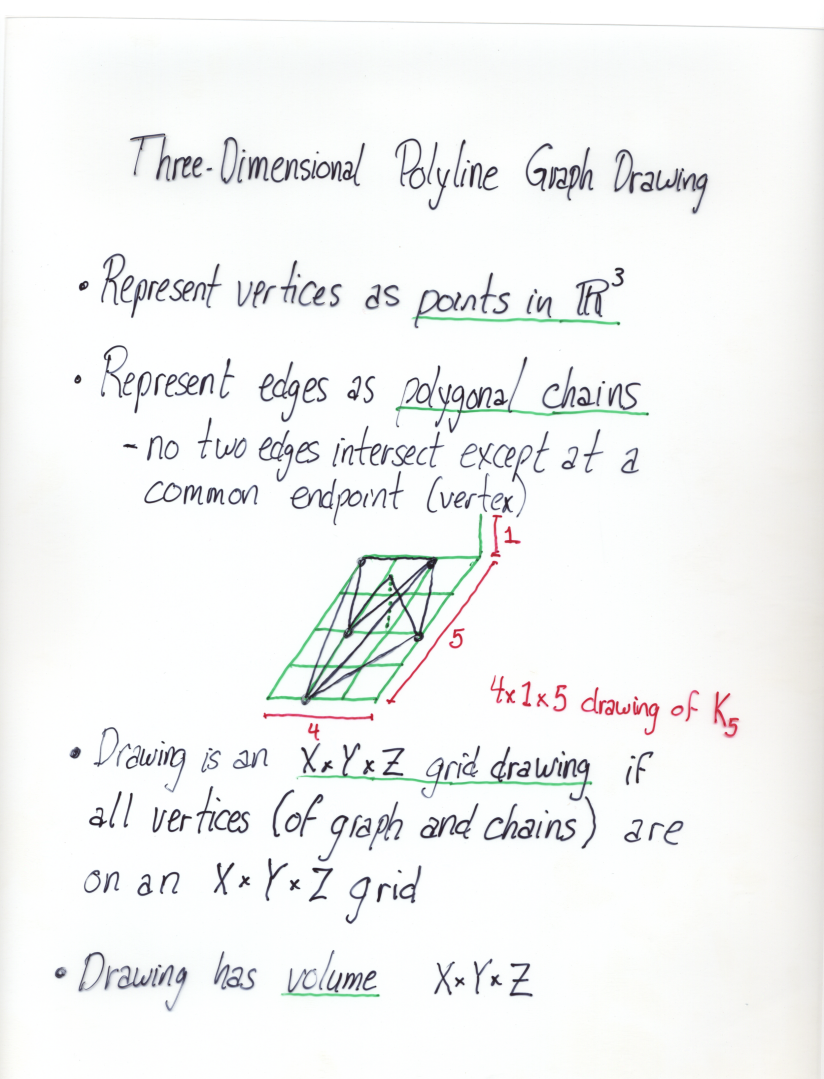 Three-Dimensional Polyline Graph Drawing
• Represent vertices as points in ℝ³
• Represent edges as polygonal chains
- no two edges intersect except at a
common endpoint (vertex)
1
5
4x1x5 drawing of K₅
4
• Drawing is an XxYxZ grid drawing if
all vertices (of graph and chains) are
on an XxYxZ grid
• Drawing has volume XxYxZ